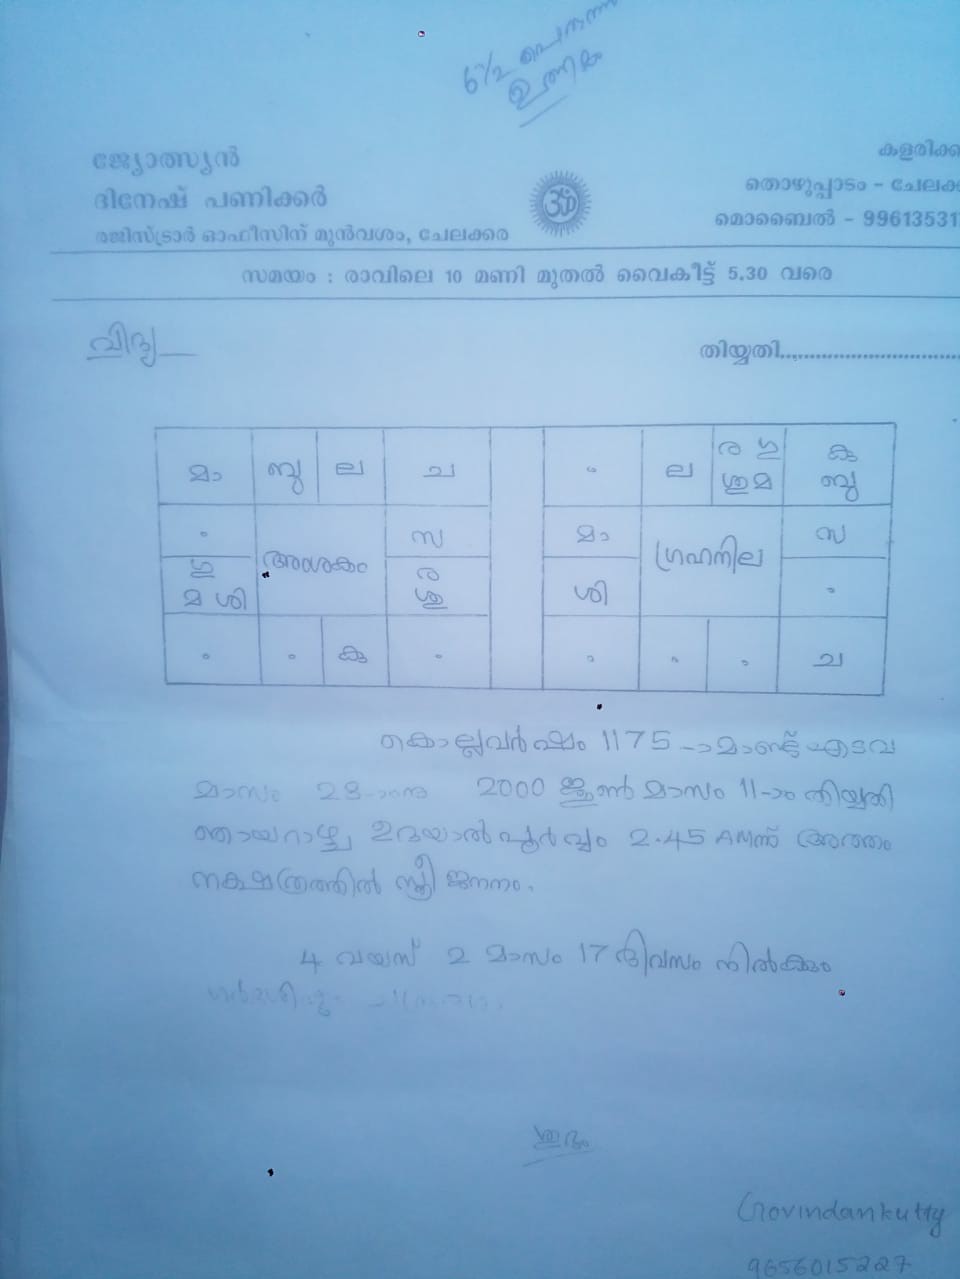 6½
ഉത്തമം
ജ്യോത്സ്യൻ
ദിനേഷ് പണിക്കർ
രജിസ്ട്രാർ ഓഫീസിന് മുൻവശം, ചേലക്കര
കളരിക്ക
തൊഴുപ്പാടം – ചേലക്ക
മൊബൈൽ – 99613531
സമയം : രാവിലെ 10 മണി മുതൽ വൈകീട്ട് 5.30 വരെ
വിദ്യ
തിയ്യതി
മാ ബു ല ച
സ
ഗു മ ശി
അംശകം
ര ശു
കു
ല ര ഗു ശു മ കു ബു
മാ ഗ്രഹനില സ
ശി
ച
കൊല്ലവർഷം 1175-ാമാണ്ട് എടവ
മാസം 28-ാംനു 2000 ജൂൺ മാസം 11-ാം തിയ്യതി
ഞായറാഴ്ച ഉദയാൽപൂർവ്വം 2.45 AMന് അത്തം
നക്ഷത്രത്തിൽ സ്ത്രീ ജനനം.
4 വയസ് 2 മാസം 17 ദിവസം നിൽക്കും
ശുഭം
Govindankutty
9656015227